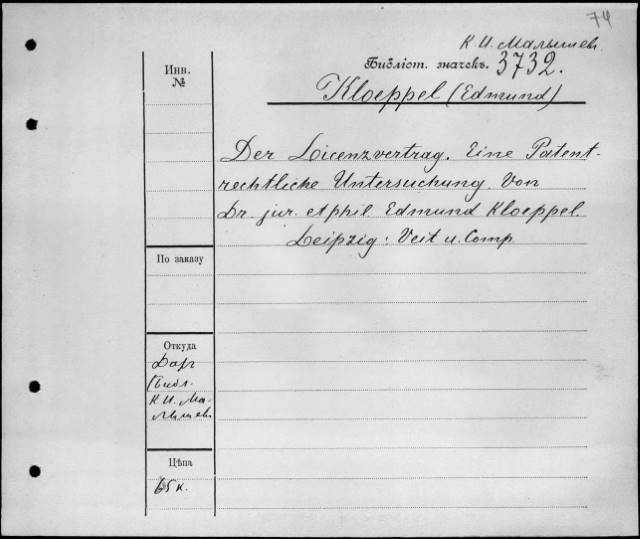 74
К. И. Малышев
Библіот. значекъ. 3732.
Инв.
№
Kloeppel (Edmund)
Der Licenzvertrag. Eine Patent-
rechtliche Untersuchung. Von
Dr. jur. et phil. Edmund Kloeppel.
Leipzig. Veit u. Comp.
По заказу
Откуда
Даръ
(Библ.
К. И. Ма-
лышева
Цѣна
65 к.